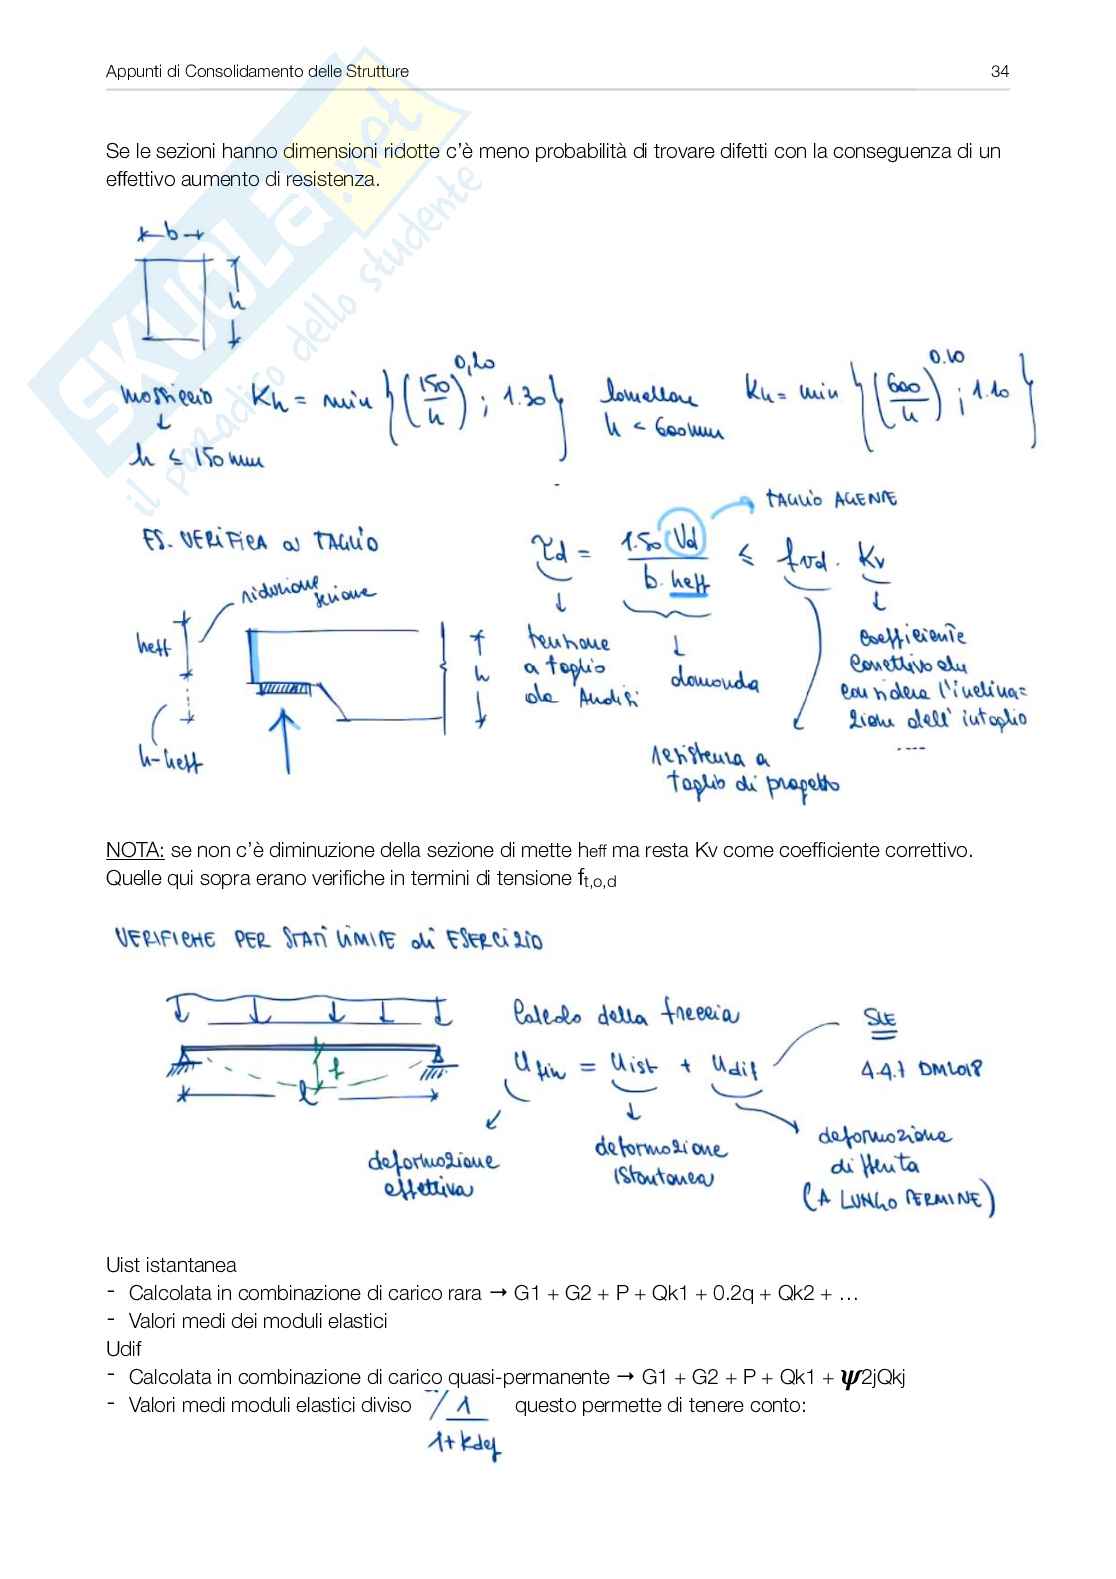 Appunti di Consolidamento delle Strutture 34
Se le sezioni hanno dimensioni ridotte c'è meno probabilità di trovare difetti con la conseguenza di un
effettivo aumento di resistenza.
SKUOLA.net
il paradiso dello studente
b
h
massiccio Kh = min {(150/h)^0,20 ; 1.30} lamellare Kh = min {(600/h)^0.10 ; 1.10}
h ≤ 150 mm
h < 600mm
ES. VERIFICA a TAGLIO
τd = 1.50 Vd / b. heff ≤ fvd . Kv
TAGLIO AGENTE
riduzione
sezione
heff
h
h-heff
tensione
a taglio
da Analisi
domanda
resistenza a
taglio di progetto
coefficiente
correttivo che
considera l'inclina=
zione dell'intaglio
....
NOTA: se non c'è diminuzione della sezione di mette heff ma resta Kv come coefficiente correttivo.
Quelle qui sopra erano verifiche in termini di tensione ft,o,d
VERIFICHE PER STATI LIMITE di ESERCIZIO
f
l
Calcolo della freccia
U fin = Uist + Udif
SLE
4.4.7 DM2018
deformazione
effettiva
deformazione
istantanea
deformazione
differita
(A LUNGO TERMINE)
Uist istantanea
- Calcolata in combinazione di carico rara → G1 + G2 + P + Qk1 + 0.2q + Qk2 + …
- Valori medi dei moduli elastici
Udif
- Calcolata in combinazione di carico quasi-permanente → G1 + G2 + P + Qk1 + ψ2jQkj
- Valori medi moduli elastici diviso / 1 / 1+kdef questo permette di tenere conto: